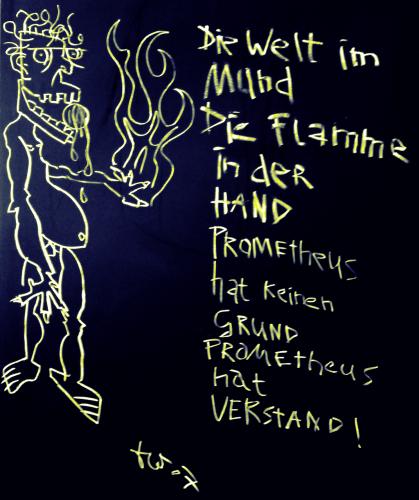 Die Welt im
Mund
Die Flamme
in der
HAND
PROMEtheus
hat keinen
GRUND
PROMEtheus
hat
VERSTAND!